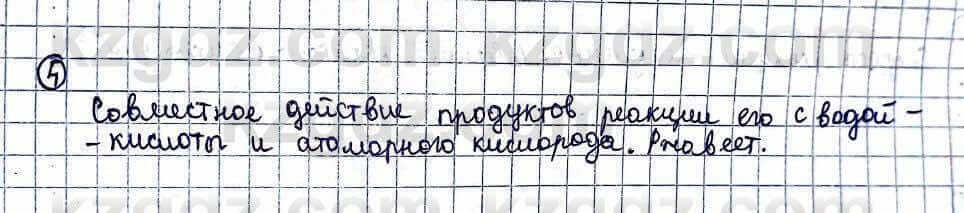 kzgdz.com kzgdz.com
4
Совместное действие продуктов реакции его с водой -
- кислоты и атомарного кислорода. Ржавеет.